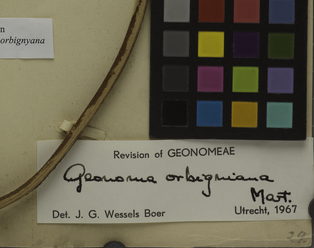 n
orbignyana
Revision of GEONOMEAE
Geonoma orbigniana
Mart.
Det. J. G. Wessels Boer
Utrecht, 1967